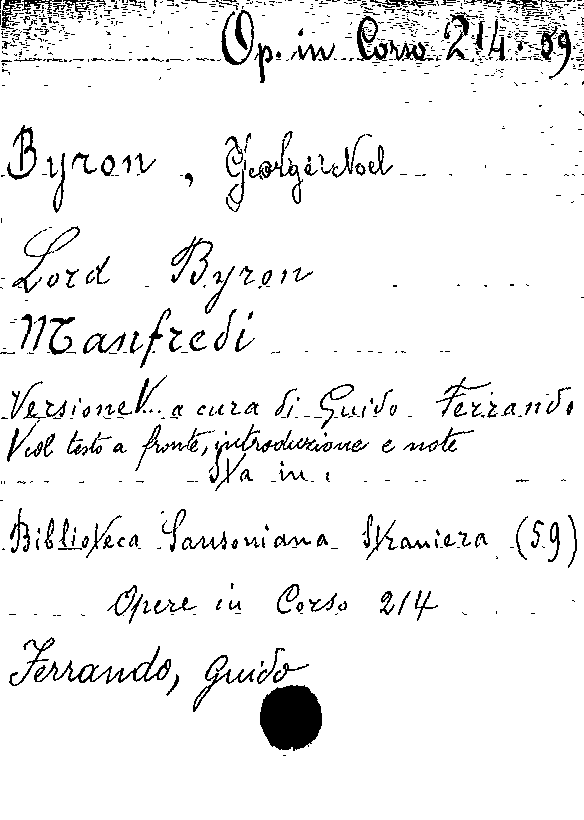 Op. in Corso 214. 59
Byron, George Noel
Lord Byron
Manfredi
Versione V... a cura di Guido Ferrando
Vcol testo a fronte, introduzione e note
Sta in:
Biblioteca Sansoniana Straniera (59)
Opere in Corso 214
Ferrando, Guido